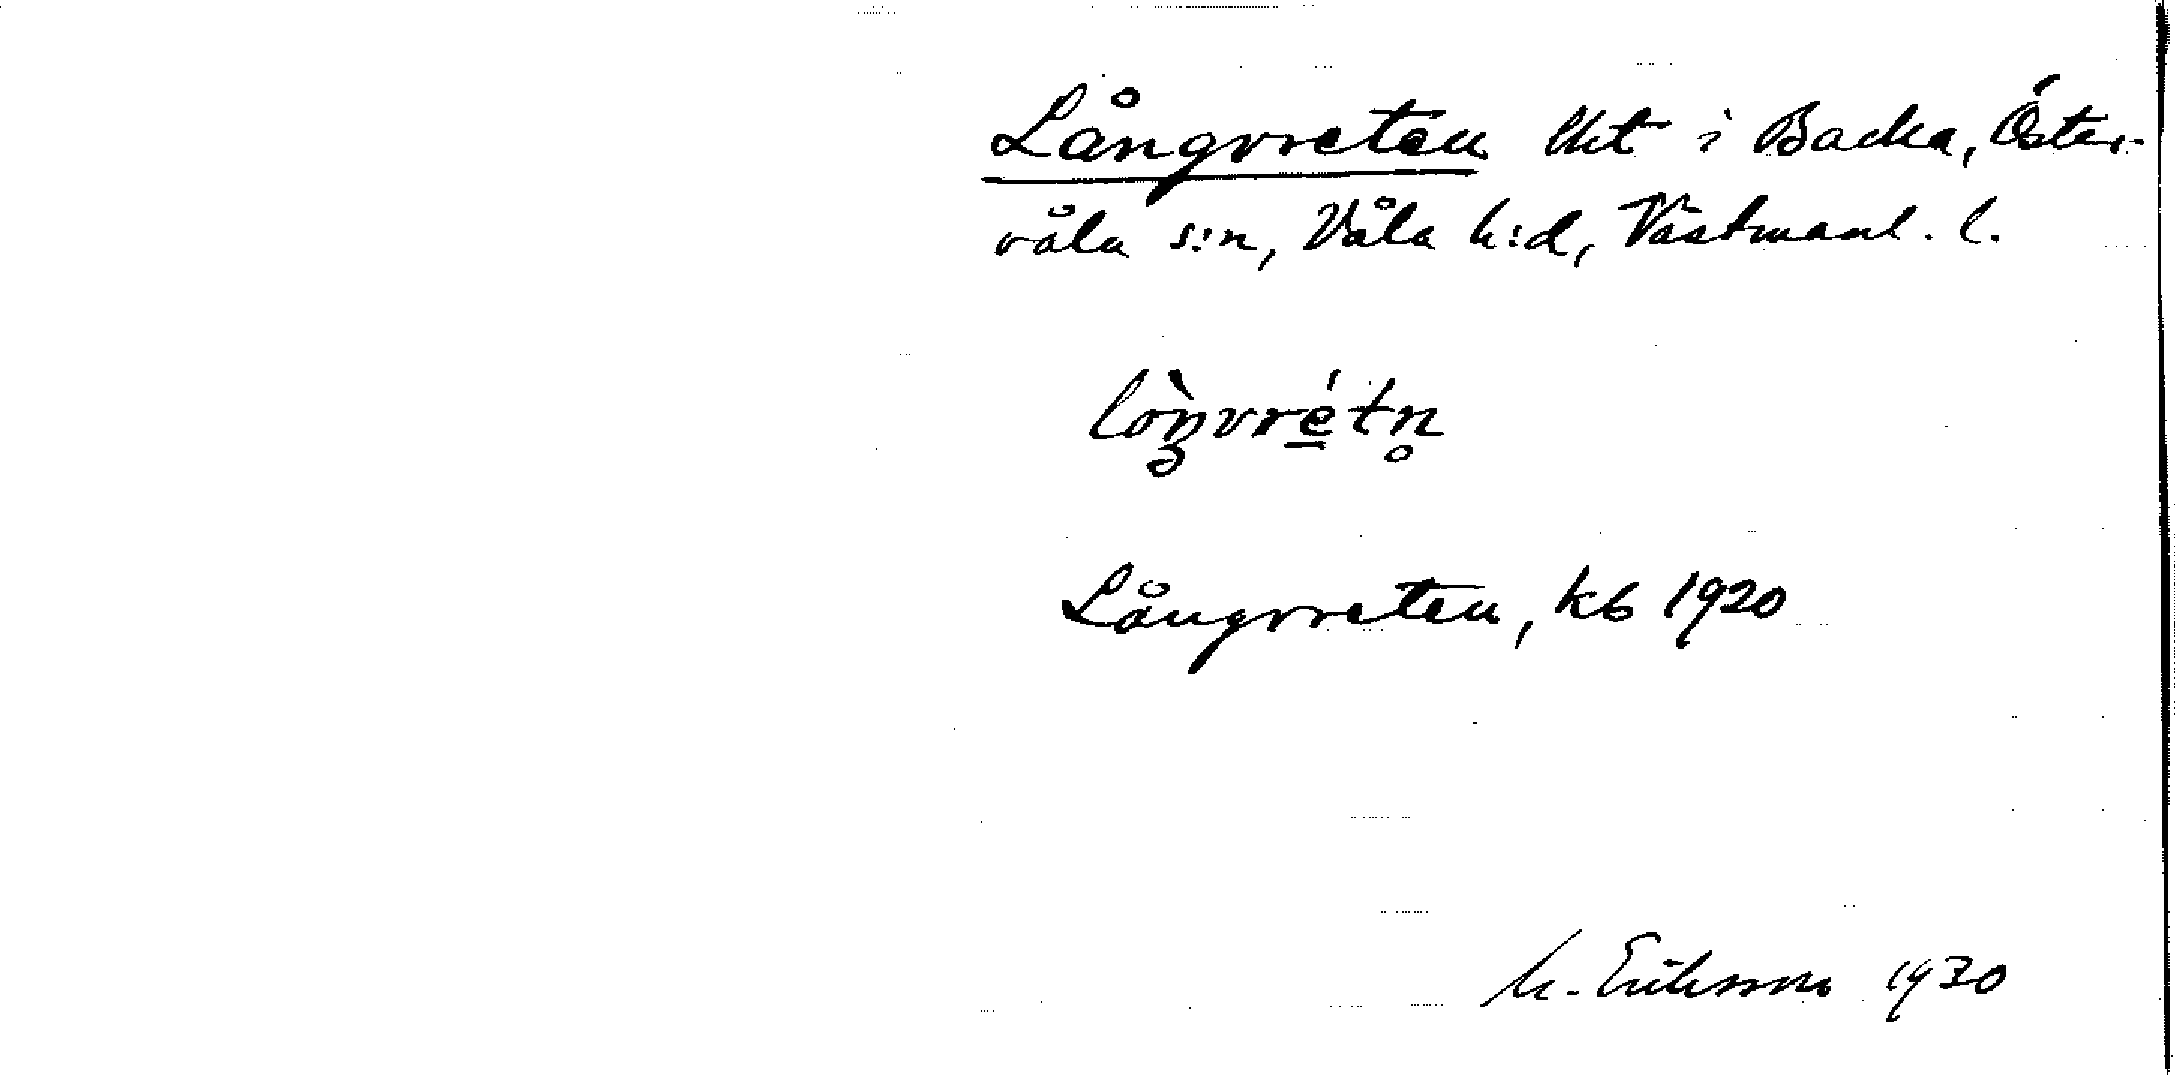 Långvreten lht i Backa, Öster-
våla s:n, Våla h:d, Västmanl. l.
lòŋvrétn̥
Långvreten, kb 1920
M. Eriksson 1930